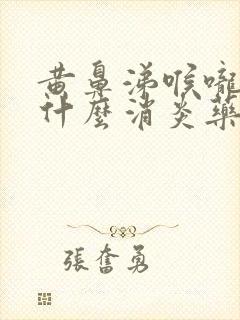 黄鼻涕喉嚨
什麼消炎藥
張奮勇